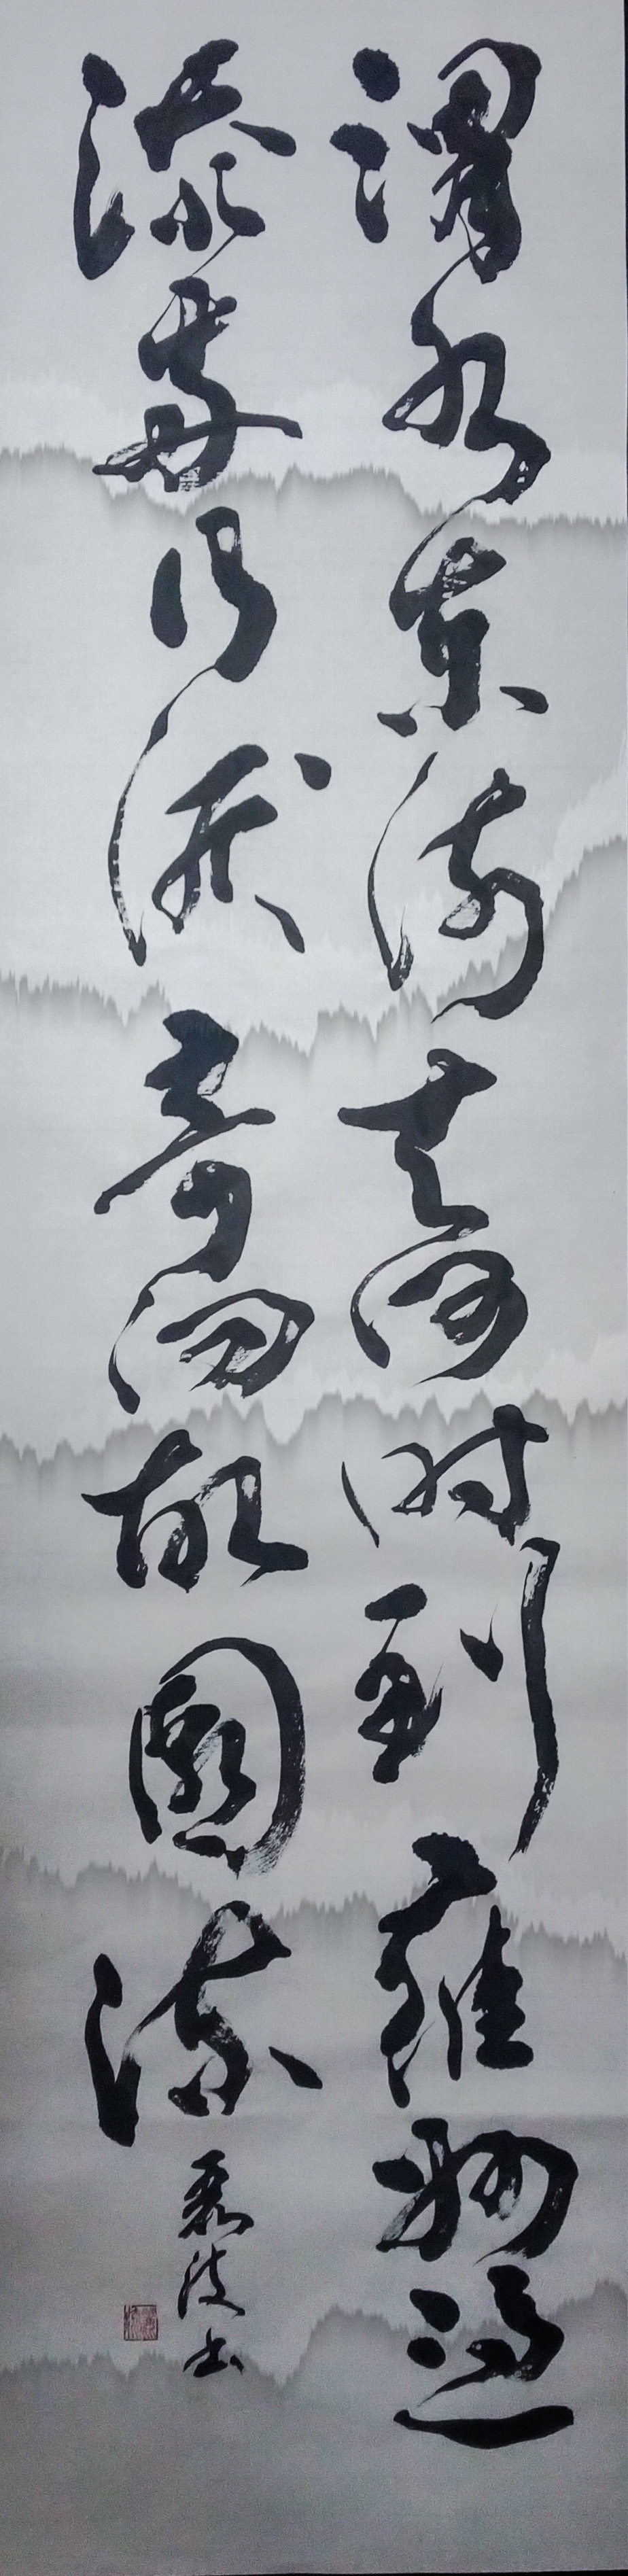 渭水東流去何時到雍州過
添兩行淚寄向故園流
書